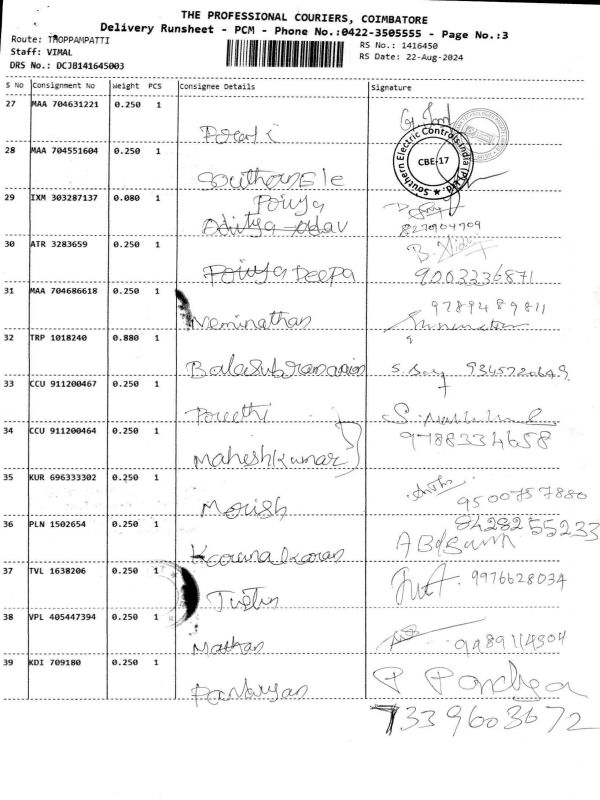 THE PROFESSIONAL COURIERS, COIMBATORE
Delivery Runsheet - PCM - Phone No.:0422-3505555 - Page No.:3
Route: THOPPAMPATTI
Staff: VIMAL
DRS No.: DCJB141645003
RS No.: 1416450
RS Date: 22-Aug-2024
S No Consignment No Weight PCS Consignee Details Signature
27 MAA 704631221 0.250 1
28 MAA 704551604 0.250 1
Southern Electric Controls India (P) Ltd.
CBE-17
29 IXM 303287137 0.080 1 Poiya
Aditya
30 ATR 3283659 0.250 1 Poiya Deepa 9003336871
31 MAA 704686618 0.250 1 Neminathan 9789489811
32 TRP 1018240 0.880 1 Balasubramanian
33 CCU 911200467 0.250 1 Preethi
34 CCU 911200464 0.250 1 Maheshkumar 9788334658
35 KUR 696333302 0.250 1 Morish 9500757880
36 PLN 1502654 0.250 1 Karunakaran 8428255233
37 TVL 1638206 0.250 1 9976628034
38 VPL 405447394 0.250 1 Mathan 9489114304
39 KDI 709180 0.250 1 P
7339603672